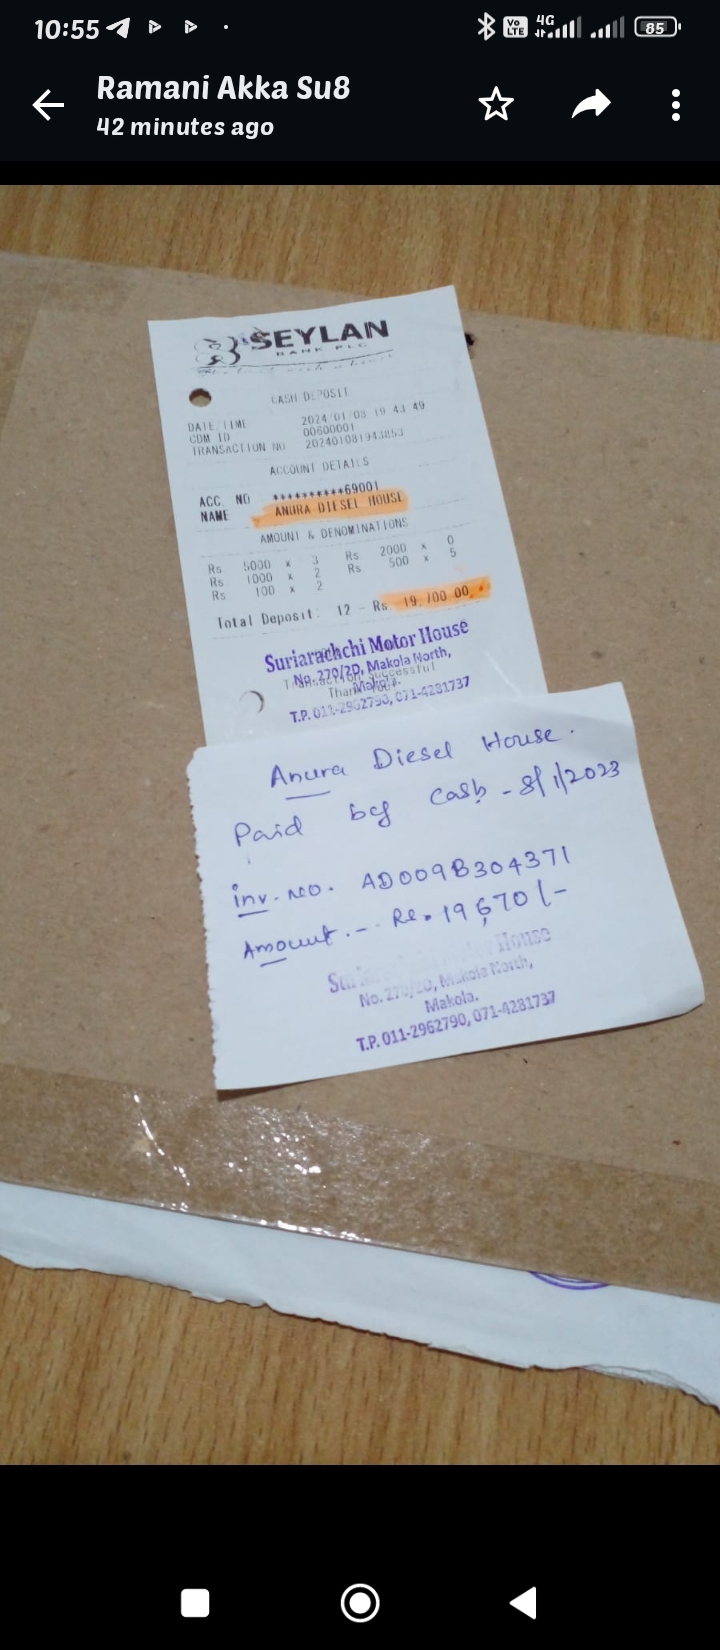 10:55
Vo
LTE
4G
85
Ramani Akka Su8
42 minutes ago
SEYLAN
BANK PLC
CASH DEPOSIT
DATE/TIME 2024/01/08 19 43 49
CDM ID 00600001
TRANSACTION NO 202401081943853
ACCOUNT DETAILS
ACC. NO **********69001
NAME ANURA DIESEL HOUSE
AMOUNT & DENOMINATIONS
Rs. 5000 x 3 Rs 2000 x 0
Rs 1000 x 2 Rs 500 x 5
Rs 100 x 2
Total Deposit: 12 - Rs. 19,700.00
Suriarachchi Motor House
No. 270/2D, Makola North,
Transaction Successful
Makola.
Thank You
T.P. 011-2962790, 071-4281737
Anura Diesel House.
Paid by Cash - 8/1/2023
inv. no. AD009B304371
Amount. - Rs. 19,670/-
Motor House
No. 270/2D, Makola North,
Makola.
T.P. 011-2962790, 071-4281737